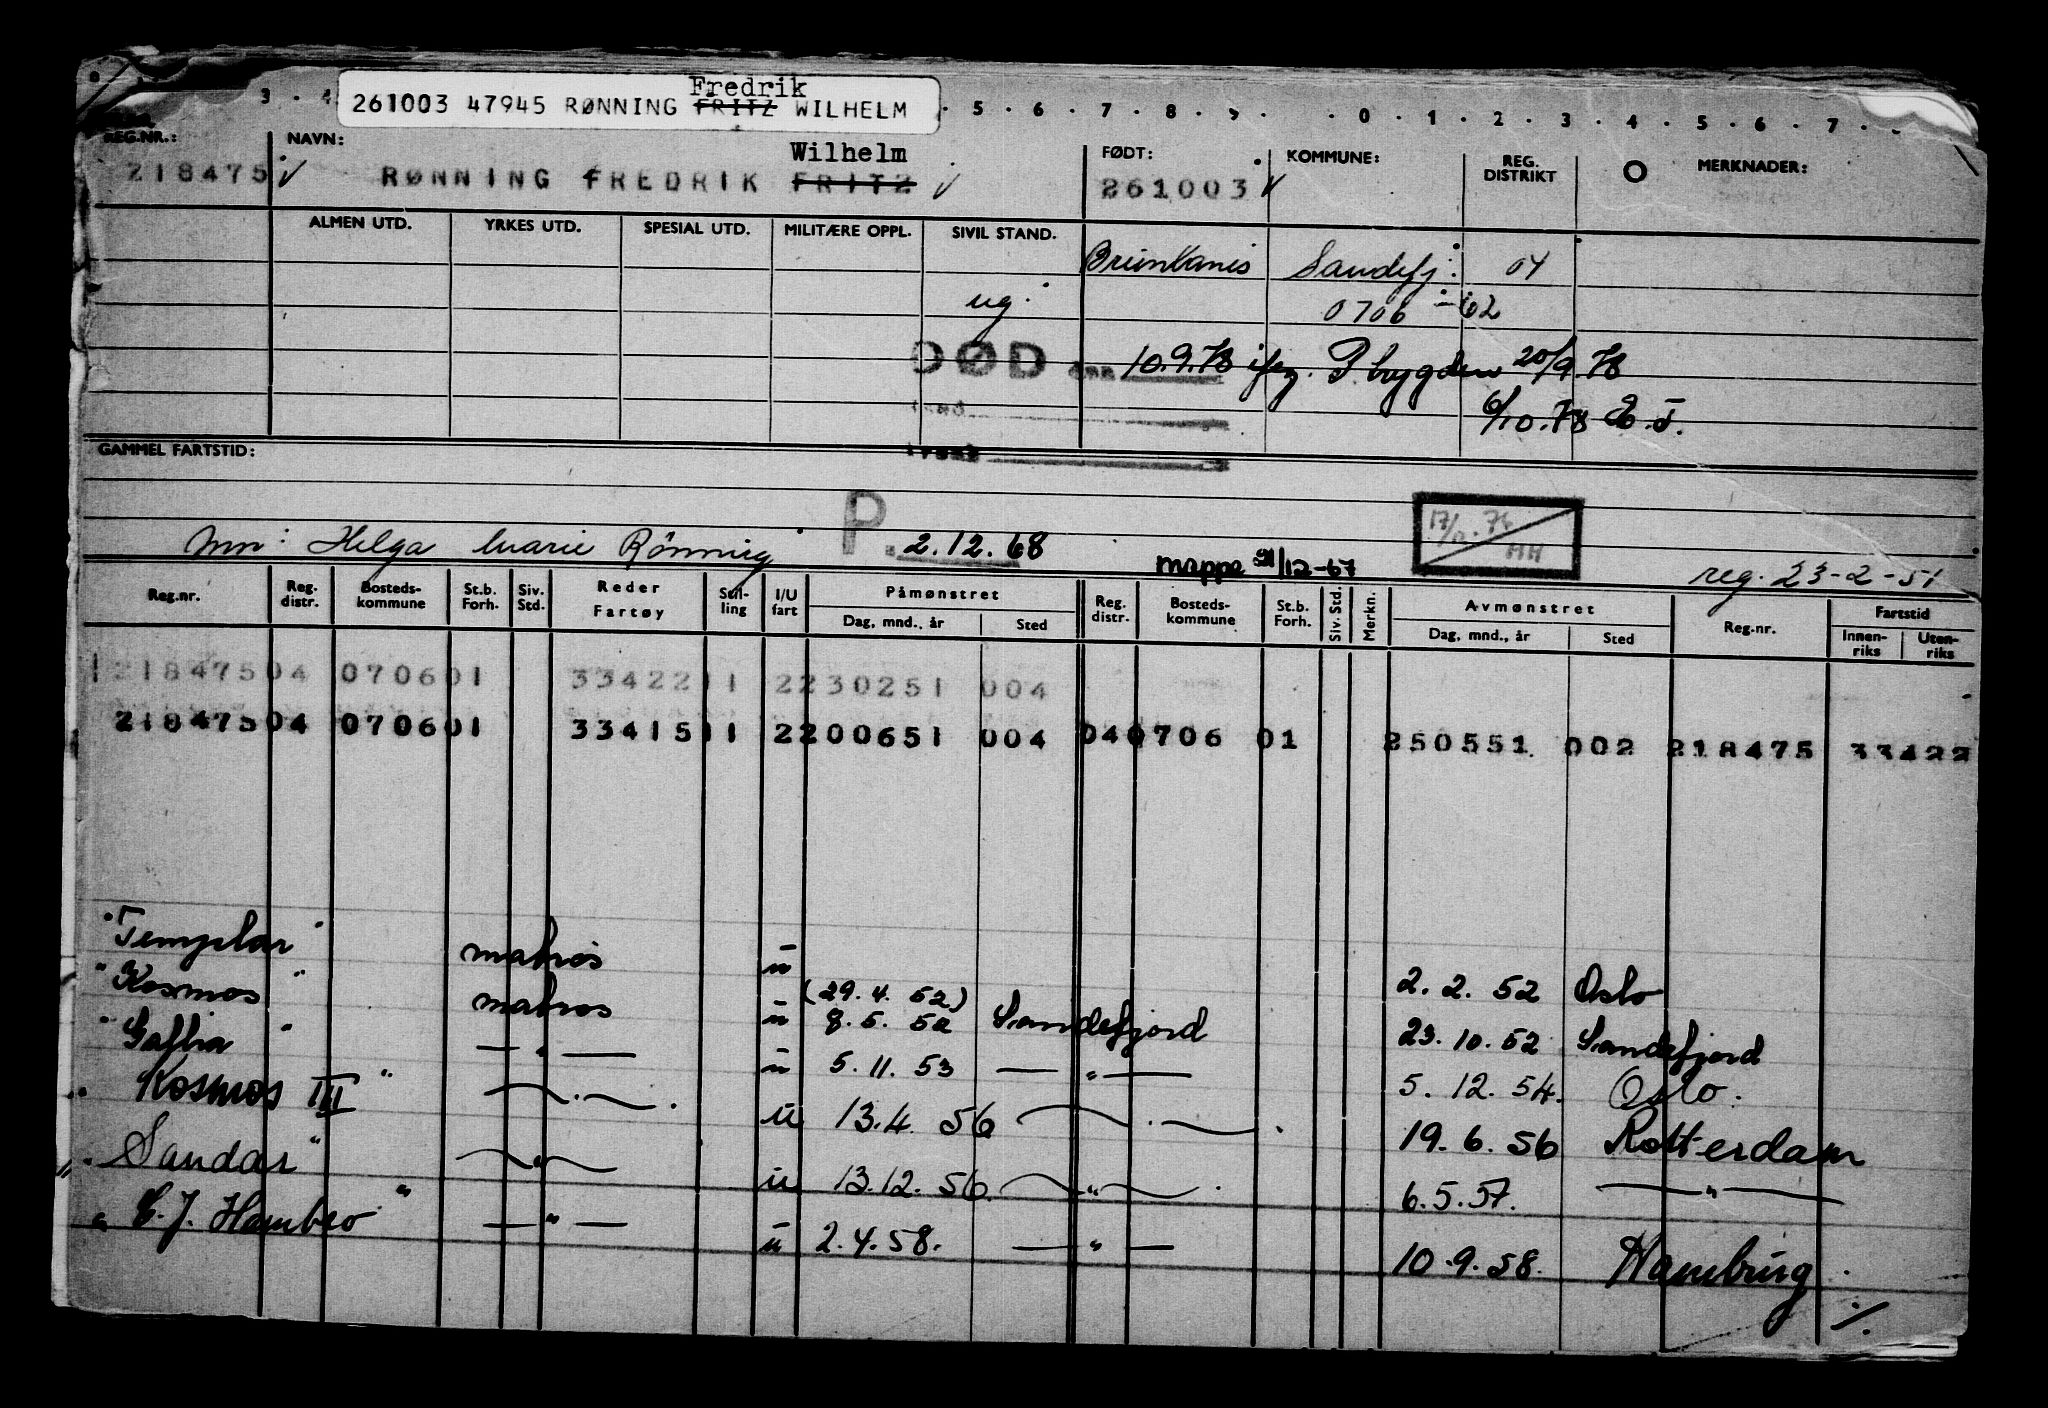 Fredrik
261003 47945 RØNNING FRITZ WILHELM
3 · 4 · 5 · 6 · 7 · 8 · 9 · · 0 · 1 · 2 · 3 · 4 · 5 · 6 · 7 ·
REG.NR.: NAVN: FØDT: KOMMUNE: REG. DISTRIKT O MERKNADER:
Wilhelm
218475 RØNNING FREDRIK FRITZ 261003
ALMEN UTD. YRKES UTD. SPESIAL UTD. MILITÆRE OPPL. SIVIL STAND.
Brunlanes Sandefj. 04
ug. 0706 - 62
DØD den 10.9.78 iflg. P.trygden 20/9.78
6/10.78 E.T.
GAMMEL FARTSTID:
P. 2.12.68
17/ . 74
HH
Mor: Helga Marie Rönning
mappe 21/12-67
reg. 23-2-51
Reg.nr. Reg. distr. Bosteds-kommune St.b. Forh. Siv. Std. Reder Fartøy Stil-ling I/U fart Påmønstret Dag, mnd., år Sted Reg. distr. Bosteds-kommune St.b. Forh. Siv. Std. Merkn. Avmønstret Dag, mnd., år Sted Reg.nr. Fartstid Innen-riks Uten-riks
218475 04 0706 01 33422 11 2 230251 004
218475 04 0706 01 33415 11 2 200651 004 04 0706 01 250551 002 218475 33422
"Templar" matros u 2. 2. 52 Oslo
"Kosmos" matros u (29. 4. 52) 8. 5. 52 Sandefjord 23. 10. 52 Sandefjord
"Suffia" — " — u 5. 11. 53 — " — 5. 12. 54. Oslo.
"Kosmos III" — " — u 13.4. 56 — " — 19. 6. 56 Rotterdam
"Sandar" — " — u 13.12. 56. — " — 6. 5. 57. — " —
"C. J. Hambro" — " — u 2. 4. 58. — " — 10. 9. 58. Hamburg.
./.